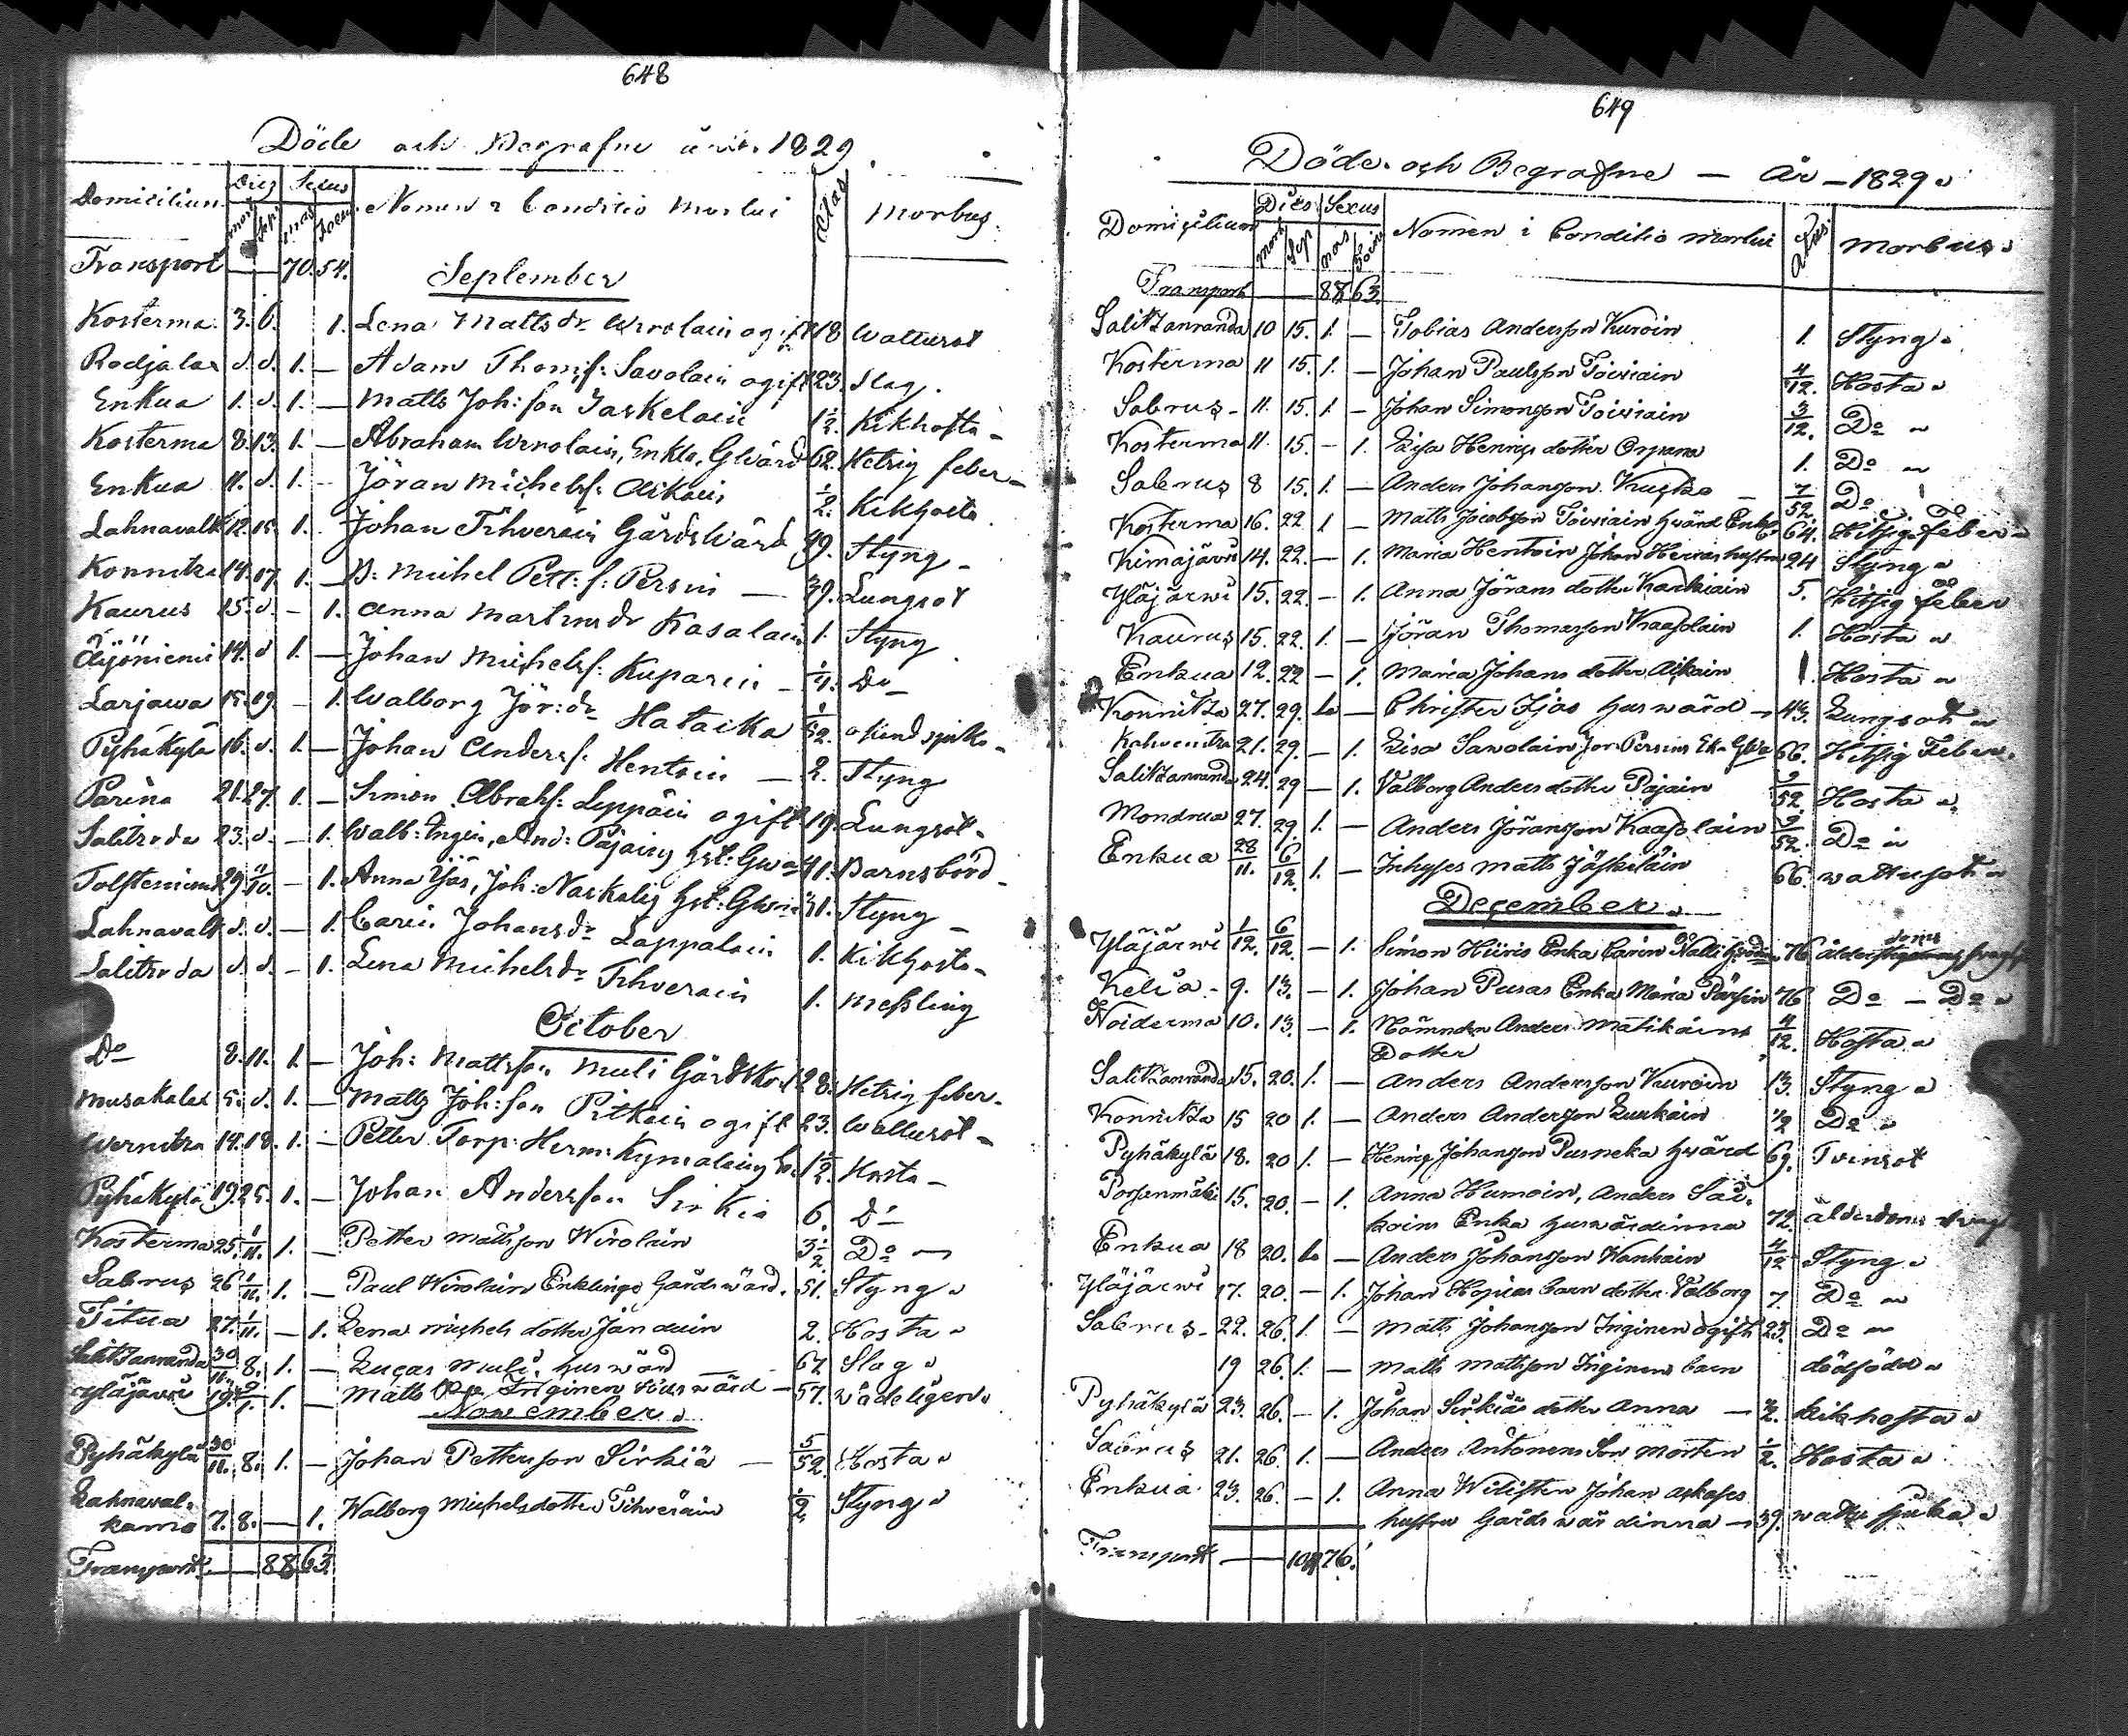 648
Döde och Begrafne åhr 1829.
Domicilium Dies Sexus Nomen & Conditio Mortui Etas Morbus.
mort Sep mas Foem
Transport — 70. 54.
September
Kosterma. 3. 6. 1. Lena Mattsdr Wirolain ogift 18 Wattusot
Rodjalax d. d. 1. — Adam Thomss: Savolain ogift 23. Slag.
Enkua 1. d. 1. — Matts Joh: son Jaskelain 1½ Kikhosta -
Kosterma 8. 13. 1. — Abraham Wirolain, Enkl, Gwärd 62. Hetsig feber -
Enkua 11. d. 1. - Jöran Michelss: Aikain ½ Kikhosta
Lahnavalk 12. 15. 1. Johan Tihverain Gårdswärd 99. Styng -
Konnitza 14. 17. 1. — D: Michel Pett: s: Persin — 39. Lungsot
Kaurus 15. d. - 1. Anna Martinsdr Kasalain 1. Styng
Äijöniemi 14. d 1. — Johan Michelss: Kuparin - ¼. Do -
Larjawa 15. 19. - 1. Walborg Jör: dr Hataika 1/52. okänd sjuk -
Pyhäkylä 16. d. 1. — Johan Anderss: Hentoin — 2. Styng
Parina 21. 27. 1. — Simon Abrahs: Leppäin ogift 19. Lungsot -
Salitzrda 23. d. - 1. Walb: Ingin, And: Pajains hst: Gwa 41. Barnsbörd -
Tolsteniemi 29. 4/10. - 1. Anna Yjäs, Joh: Naskalis hst: Gwa 31. Styng -
Lahnavalk d. d. - 1. Carin Johansdr Lappalain 1. Kikhosta -
Salitzrda d. d. - 1. Lena Michelsdr Tihverain 1. Messling
October
Do 8. 11. 1. — Joh: Mattsson Muli Gårdskarl 28. Hetsig feber -
Musakalax 5. d. 1. — Matts Joh: son Pitkäin ogift 23. Wattusot -
Wernitza 14. 18. 1. — Petter Torp: Herm: Kymalains b. 1½. Hosta -
Pyhäkylä 19. 25. 1. — Johan Andersson Sirkia 6. Do
Kosterma 25. 1/11. 1. — Petter Mattsson Wirolain 3½ Do -
Sabrus 26 1/11. 1. — Paul Wirolain Enklinge Gårdswärd. 51. Styng.
Titua 27. 1/11. — 1. Lena Michels dotter Jänduin 2. Hosta.
Salitzanranda 30/10. 8. 1. — Lucas Muli, huswärd — 67. Slag.
Yläjärwi 19. 1. — Matts Inginen huswärd — 57. wådeligen.
November.
Pyhäkylä 30/10. 8. 1. — Johan Pettersson Sirkiä — 5/52. Hosta.
Lahnaval-
kama 7. 8. — 1. Walborg Michelsdotter Tihveräin ½. Styng.
Transport — — 88 63.
649
Döde och Begrafne — År — 1829.
Domicilium Dies Sexus Nomen i Conditio mortui Ætas Morbus.
Mort Sep Mas Foem
Transport — — 88 63.
Salitzanranda 10 15. 1. — Tobias Andersson Kuroin 1. Styng.
Kosterma 11 15. 1. — Johan Paulsson Toiwiain 4/12. Hosta.
Sabrus - 11. 15. 1. — Johan Simonsson Toiwiain 3/12. Do
Kosterma 11. 15. — 1. Lisa Henrics dotter Orpana 1. Do
Sabrus 8 15. 1. — Anders Johansson Kuska — 7/52. Do
Kosterma 16. 22. 1 — Matts Jacobsson Toiwiain hwärd Enkl 64. Hitsig feber
Kimajärwi 14. 22. — 1. Maria Hentoin Johan Heinas hustru 24 Styng
Yläjärwi 15. 22. — 1. Anna Jörans dotter Karkiain 5. Hitsig feber
Kaurus 15. 22. 1. — Jöran Thomasson Kaasolain 1. Hosta
Enkua 12. 22 — 1. Maria Johans dotter Aikain 1. Hosta
Konnitza 27. 29. 1. — Christer Ijas huswärd — 43. Lungsot
Kahventza 21. 29. — 1. Lisa Sawolain Jör: Persins Enka Gwa 66. Hitsig Feber.
Salitzanranda 24. 29 — 1. Valborg Anders dotter Pajain 2/52 Hosta
Mondrua 27. 29. 1. — Anders Jöransson Kaasolain 9/52. Do
Enkua 28/11. 6/12 1. — Inhyses Matts Jäskiläin 66. wattusot
December.
Yläjärwi 1/12. 6/12. — 1. Simon Hiiris Enka Carin Nalli 76 ålderdoms svaghet
Kelia - 9. 13. — 1. Johan Pusas Enka Maria Pärsin 76 Do — Do
Noiderma 10. 13. — 1. Nämnden Anders Matikains 4/12. Hosta
Dotter
Salitzanranda 15. 20. 1. — Anders Andersson Kuroin 13. Styng
Konnitza 15 20 1. — Anders Andersson Luukain ½ Do
Pyhäkylä 18. 20 1. — Henric Johansson Pusneka hwärd 69. Tvinsot
Porsenmäki 15. 20. — 1. Anna Humoin, Anders Säi-
koins Enka huswärdinna 72. ålderdoms svag
Enkua 18 20. 1. — Anders Johansson Wanhain 4/12 Styng.
Yläjärwi 17. 20. — 1. Johan Hojias barn dotter Valborg 7. Do
Sabrus - 22. 26. 1. — Matts Johansson Inginen ogift 23. Do
19 26. 1. — Matts Mattsson Inginens barn dödfödd
Pyhäkylä 23. 26. — 1. Johan Sirkiäs dotter Anna — ½. kikhosta
Sabrus 21. 26. 1. — Anders Antonens Son Morten ½. Hosta
Enkua 23. 26. — 1. Anna Wilisten Johan Askases
hustru Gårdswärdinna — 39. wattu sjuka
Transport — — 76.